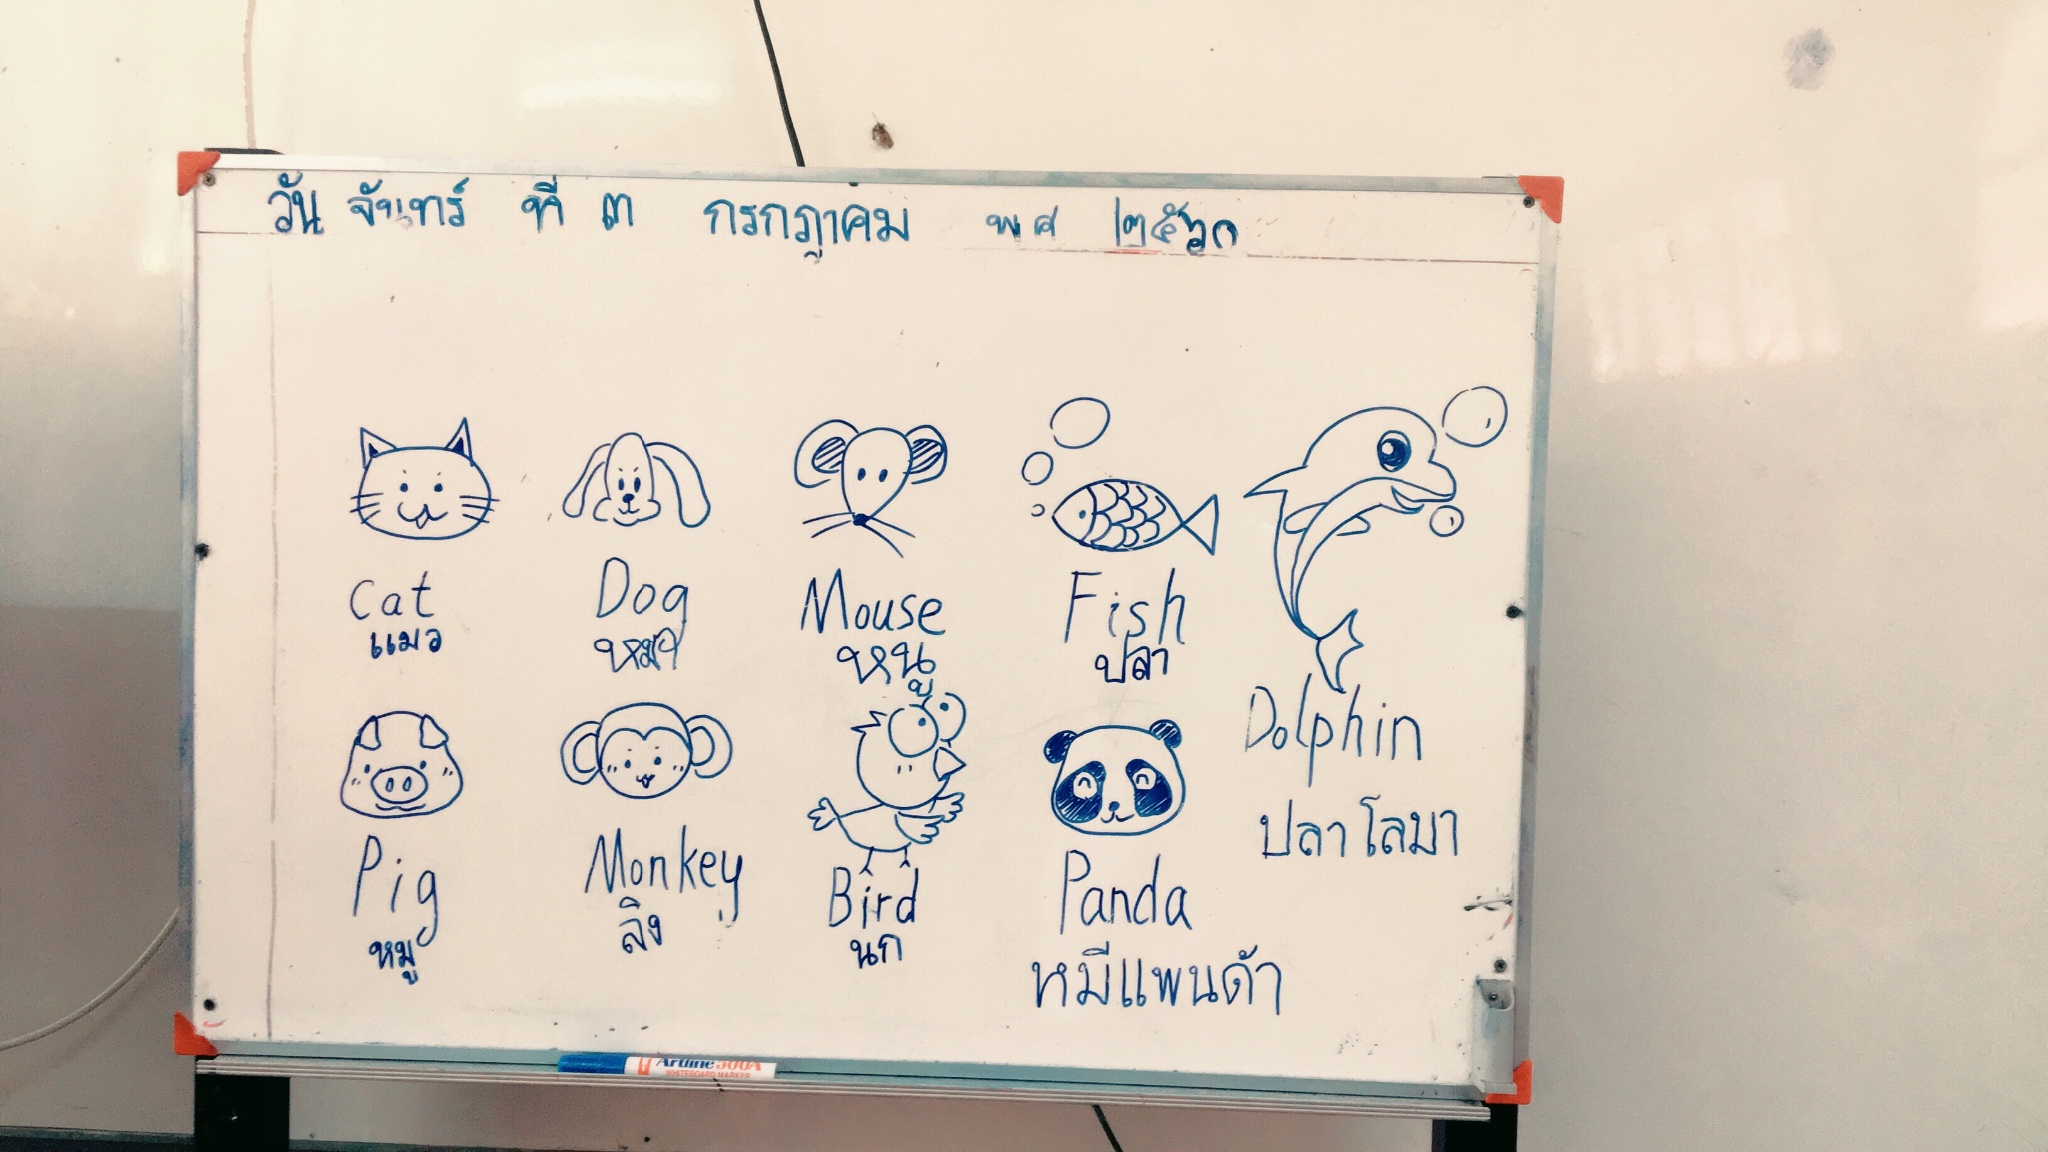 วัน จันทร์ ที่ ๓ กรกฎาคม พ ศ ๒๕๖๐
Cat
แมว
Dog
หมา
Mouse
หนู
Fish
ปลา
Dolphin
ปลาโลมา
Pig
หมู
Monkey
ลิง
Bird
นก
Panda
หมีแพนด้า
Artline 500A
WHITEBOARD MARKER